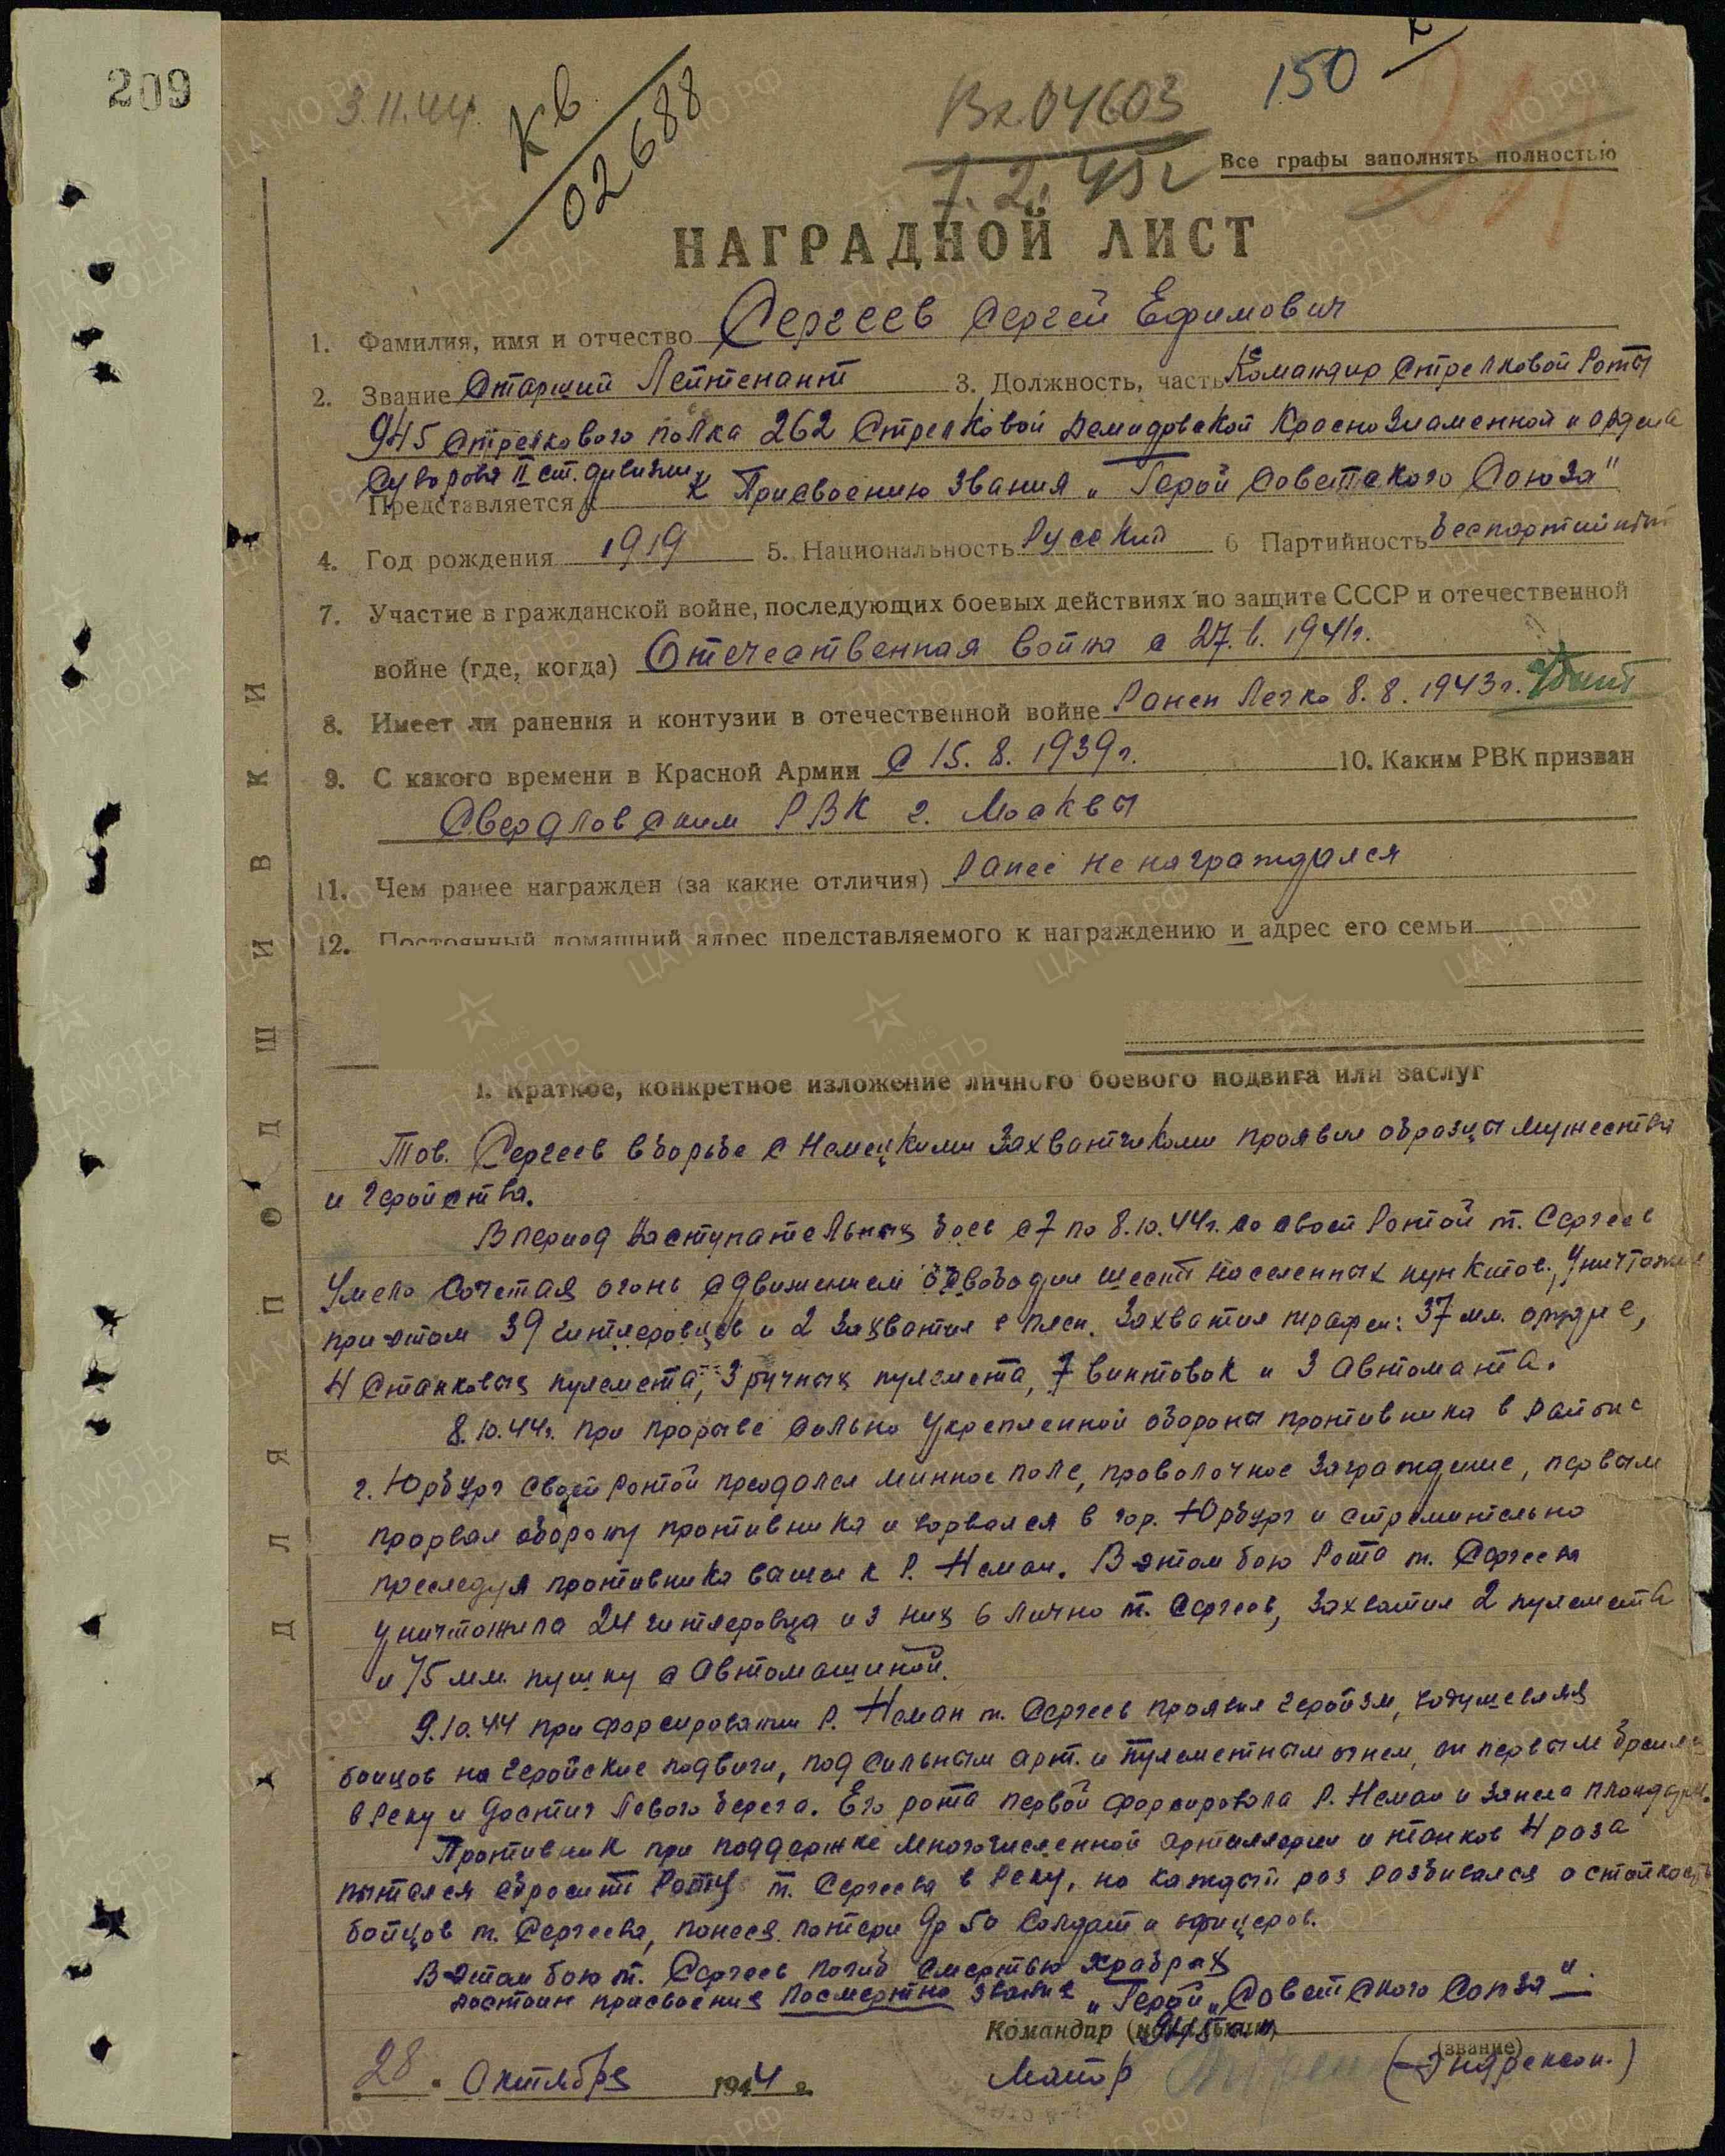 209
3.11.44.
Кв
02688
Вх.04603
7.2.45г
150
Все графы заполнять полностью
НАГРАДНОЙ ЛИСТ
1. Фамилия, имя и отчество Сергеев Сергей Ефимович
2. Звание Старший Лейтенант 3. Должность, часть Командир Стрелковой Роты
945 Стрелкового полка 262 Стрелковой Демидовской Краснознаменной и ордена
Суворова II ст. дивизии
Представляется к Присвоению звания „Герой Советского Союза"
4. Год рождения 1919 5. Национальность Русский 6 Партийность беспартийный
7. Участие в гражданской войне, последующих боевых действиях по защите СССР и отечественной
войне (где, когда) Отечественная война с 27.6.1941г.
8. Имеет ли ранения и контузии в отечественной войне Ранен Легко 8.8.1943г. Убит
9. С какого времени в Красной Армии с 15.8.1939г. 10. Каким РВК призван
Свердловским РВК г. Москвы
11. Чем ранее награжден (за какие отличия) Ранее не награждался
12. Постоянный домашний адрес представляемого к награждению и адрес его семьи
1. Краткое, конкретное изложение личного боевого подвига или заслуг
Тов. Сергеев в борьбе с Немецкими Захватчиками проявил образцы мужества
и геройства.
В период наступательных боев с 7 по 8.10.44г. со своей Ротой т. Сергеев
Умело Сочетая огонь с движением освободил шесть населенных пунктов, Уничтожил
при этом 39 гитлеровцев и 2 Захватил в плен. Захватил трофеи: 37 мм. орудие,
4 Станковых пулемета, 3 ручных пулемета, 7 винтовок и 3 Автомата.
8.10.44г. при прорыве сильно Укрепленной обороны противника в районе
г. Юрбург своей Ротой преодолел минное поле, проволочное Заграждение, первым
прорвал оборону противника и ворвался в гор. Юрбург и стремительно
преследуя противника вышел к Р. Неман. В этом бою Рота т. Сергеева
уничтожила 24 гитлеровца из них 6 Лично т. Сергеев, Захватил 2 пулемета
и 75 мм. пушку с Автомашиной.
9.10.44 при форсировании Р. Неман т. Сергеев проявил героизм, воодушевляя
бойцов на геройские подвиги, под Сильным арт. и пулеметным огнем, он первым бросился
в Реку и достиг Левого берега. Его рота первой форсировала Р. Неман и заняла плацдарм.
Противник при поддержке многочисленной артиллерии и танков 4 раза
пытался сбросить Роту т. Сергеева в Реку, но каждый раз разбивался о стойкость
бойцов т. Сергеева, понеся потери до 50 Солдат и офицеров.
В этом бою т. Сергеев погиб Смертью храбрых
достоин присвоения посмертно звания „Герой Советского Союза".
Командир (начальник) 945 сп
(звание)
Майор (Андерсон.)
28 . Октября 1944 г.
ДЛЯ ПОДШИВКИ